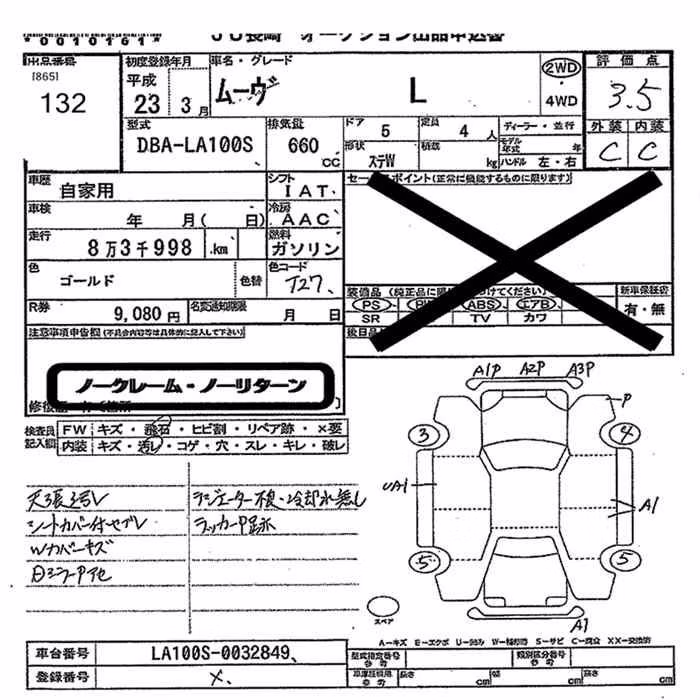 *0010161*
JU長崎 オークション出品申込書
出品番号
[865]
132
初度登録年月
平成
23 3月
車名・グレード
ムーヴ L
2WD
・
4WD
評価点
3.5
外装 内装
C C
型式
DBA-LA100S
排気量
660
CC
ドア
5
定員
4人
形状
ステW
積載
kg
ディーラー・並行
モデル年式 年
ハンドル 左・右
車歴
自家用
シフト
IAT
セールスポイント(正常に機能するものに限ります)
車検
年 月( 日)
冷房
AAC
走行
8万3千998 km
燃料
ガソリン
色
ゴールド
色替
色コード
T27
R券
9,080円
名変通知期限
月 日
新車保証書
有・無
PS
ABS
エアB
SR
TV
カワ
後日品
注意事項申告欄(不具合内容等は具体的に記入して下さい)
ノークレーム・ノーリターン
検査員記入欄
FW キズ・飛石・ヒビ割・リペア跡・×要
内装 キズ・汚レ・コゲ・穴・スレ・キレ・破レ
天張汚レ
シートカバー付セブレ
Wカバーキズ
ラジエーター不良・冷却水無し
ラッカーP跡
A1P A2P A3P
P
3
4
UA1
A1
5
5
スペア
A1
A-キズ E-エクボ U-凹み W-補修跡 S-サビ C-腐食 XX-交換済
車台番号
LA100S-0032849
登録番号
型式指定番号
参考
類別区分番号
参考
長さ
cm
幅
cm
高さ
cm